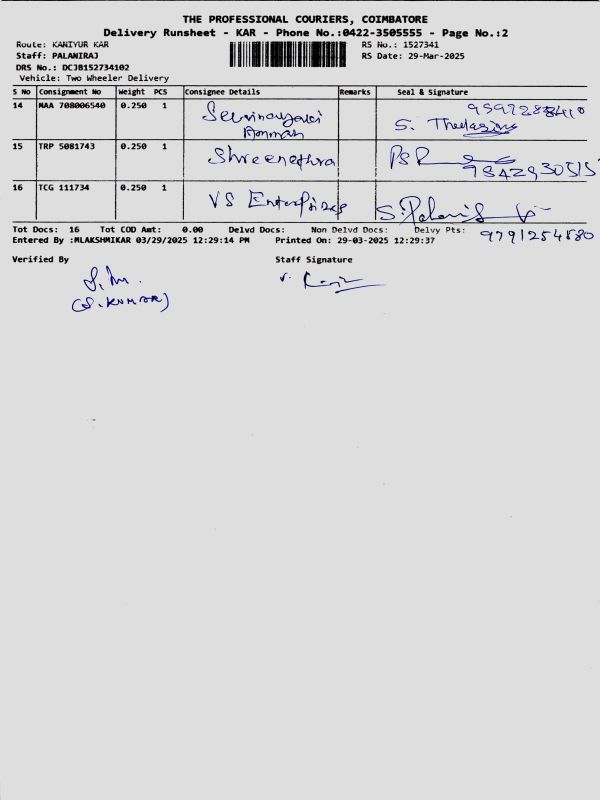 THE PROFESSIONAL COURIERS, COIMBATORE
Delivery Runsheet - KAR - Phone No.:0422-3505555 - Page No.:2
Route: KANIYUR KAR RS No.: 1527341
Staff: PALANIRAJ RS Date: 29-Mar-2025
DRS No.: DCJB152734102
Vehicle: Two Wheeler Delivery
S No Consignment No Weight PCS Consignee Details Remarks Seal & Signature
14 MAA 708006540 0.250 1 Amman S.
15 TRP 5081743 0.250 1 Shreenethra PSR 9842930515
16 TCG 111734 0.250 1 VS Enterprises S. Palanis
Tot Docs: 16 Tot COD Amt: 0.00 Delvd Docs: Non Delvd Docs: Delvy Pts: 9791254580
Entered By :MLAKSHMIKAR 03/29/2025 12:29:14 PM Printed On: 29-03-2025 12:29:37
Verified By Staff Signature
(S. KUMAR)